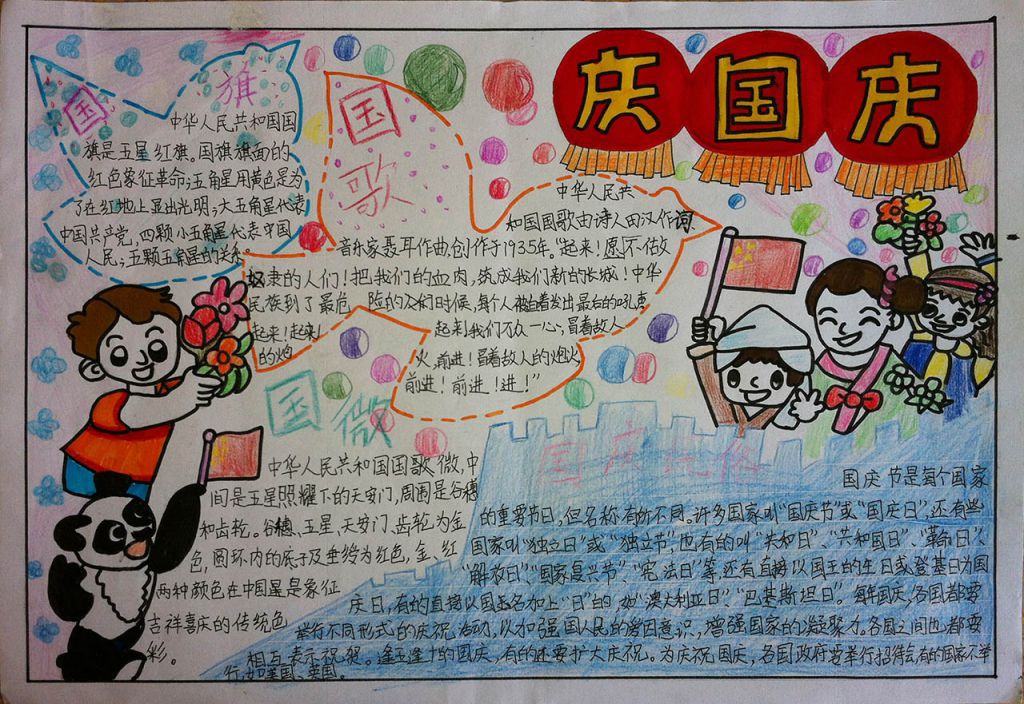 庆国庆
国旗
中华人民共和国国
旗是五星红旗。国旗旗面的
红色象征革命;五角星用黄色是为
了在红地上显出光明;大五角星代表
中国共产党,四颗小五角星代表中国
人民;五颗五角星的关系。
国歌
中华人民共
和国国歌由诗人田汉作词
音乐家聂耳作曲,创作于1935年。"起来!愿不做
奴隶的人们!把我们的血肉,筑成我们新的长城!中华
民族到了最危险的时候,每个人被迫着发出最后的吼声
起来!起来!起来!我们万众一心,冒着敌人
的炮火,前进!冒着敌人的炮火
前进!前进!进!"
国徽
中华人民共和国国歌徽,中
间是五星照耀下的天安门,周围是谷穗
和齿轮。谷穗、五星、天安门、齿轮为金
色,圆环内的底子及垂绶为红色,金、红
两种颜色在中国是象征
吉祥喜庆的传统色
彩。
国庆民俗
国庆节是每个国家
的重要节日,但名称有所不同。许多国家叫"国庆节"或"国庆日",还有些
国家叫"独立日"或"独立节",也有的叫"共和日"、"共和国日"、"革命日"、
"解放日"、"国家复兴节"、"宪法日"等,还有直接以国王的生日或登基日为国
庆日,有的直接以国名加上"日"的,如"澳大利亚日"、"巴基斯坦日"。每年国庆,各国都要
举行不同形式的庆祝活动,以加强国人民的爱国意识,增强国家的凝聚力。各国之间也都要
相互表示祝贺。逢五逢十的国庆,有的还要扩大庆祝。为庆祝国庆,各国政府要举行招待会,有的国家不举
行,如美国、英国。